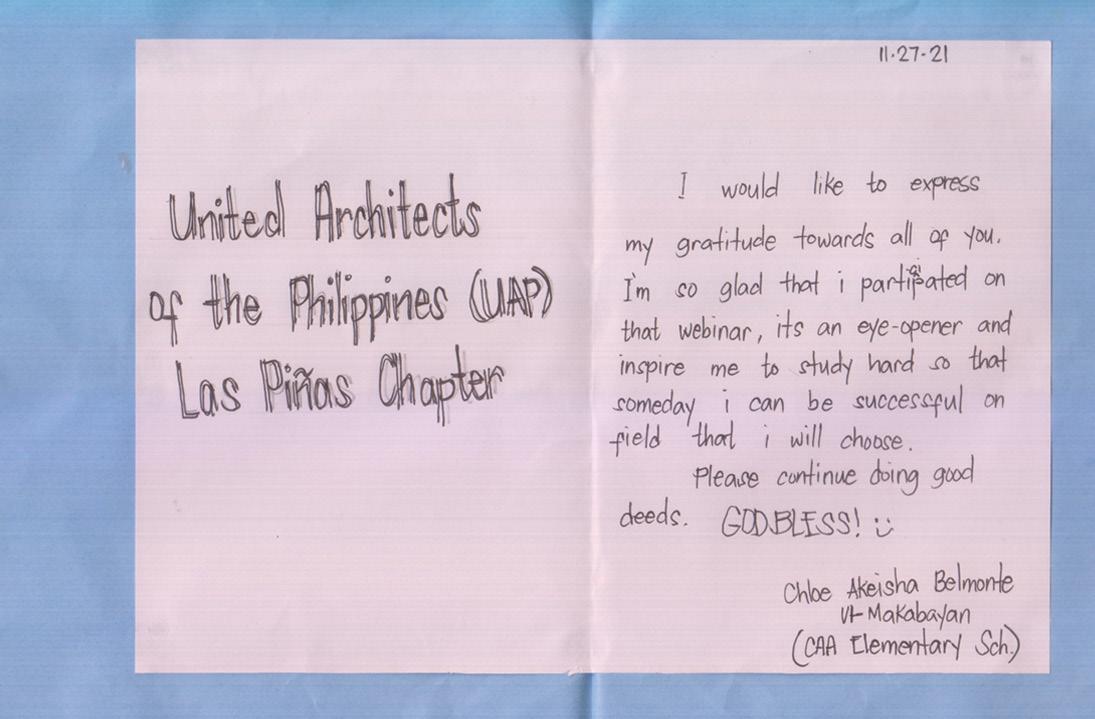 United Architects
of the Philippines (UAP)
Las Piñas Chapter
11-27-21
I would like to express
my gratitude towards all of you.
I'm so glad that i participated on
that webinar, its an eye-opener and
inspire me to study hard so that
someday i can be successful on
field that i will choose.
Please continue doing good
deeds. GODBLESS! :)
Chloe Akeisha Belmonte
VI-Makabayan
(CAA Elementary Sch.)